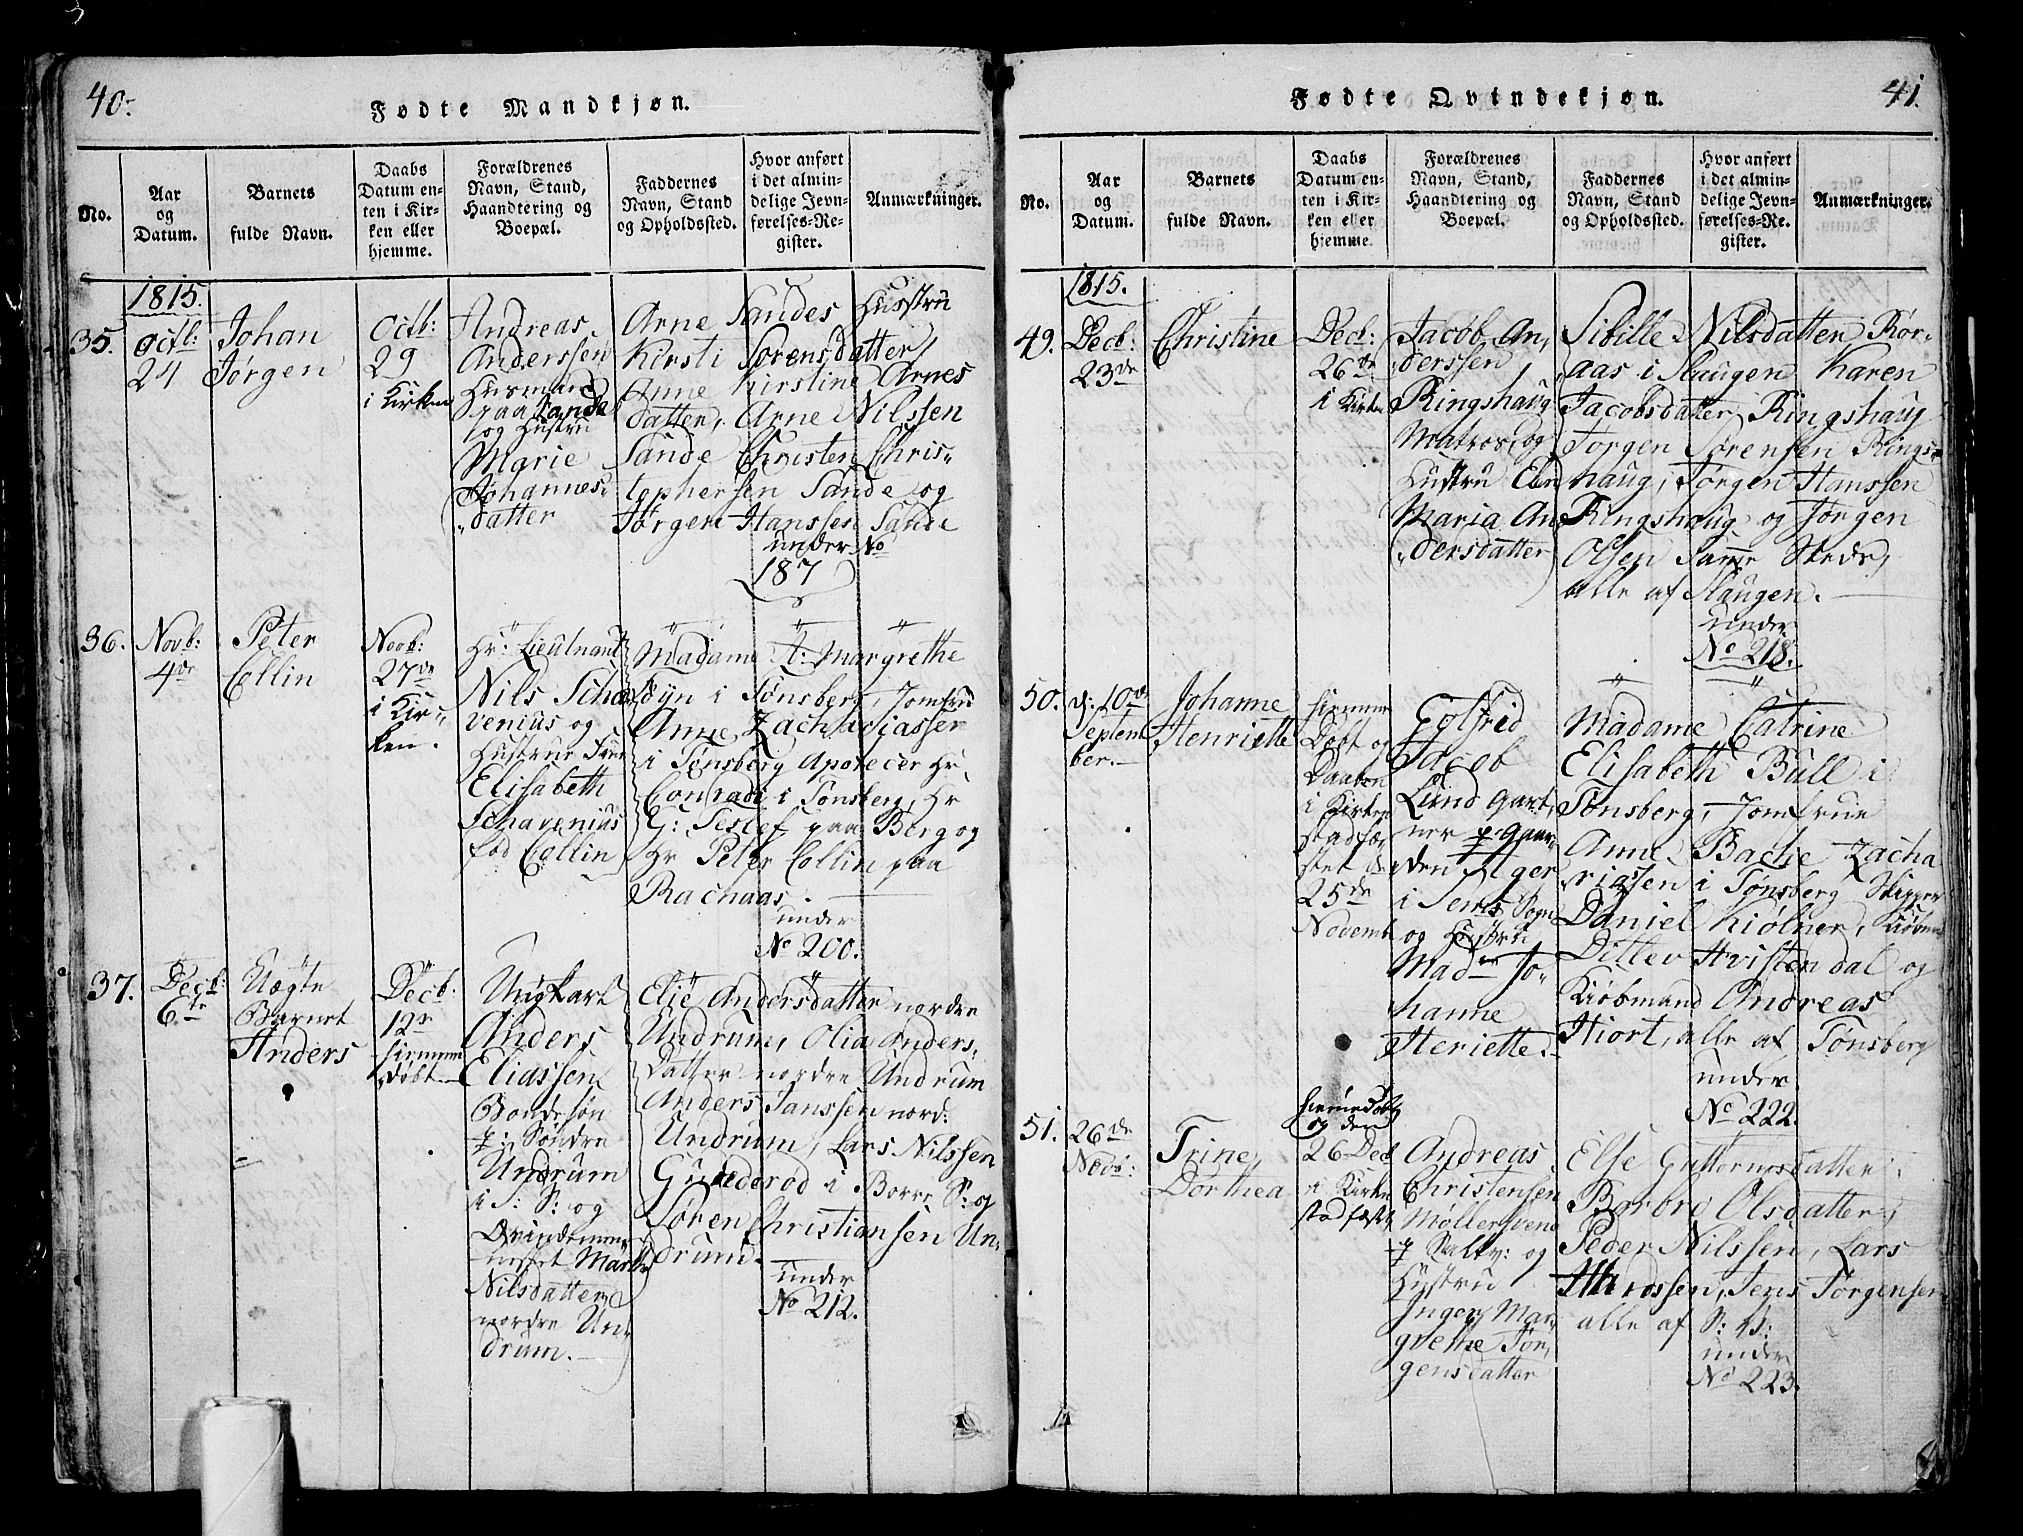 40.
Fødte Mandkjøn.
No.
Aar
og
Datum.
Barnets
fulde Navn.
Daabs
Datum en-
ten i Kir-
ken eller
hjemme.
Forældrenes
Navn, Stand,
Haandtering og
Boepæl.
Faddernes
Navn, Stand
og Opholdssted.
Hvor anført
i det almin-
delige Jevn-
førelses-Re-
gister.
Anmærkninger.
1815.
35.
Octb:
24
Johan
Jørgen
Octb:
29
i Kirken
Andreas
Anderssen
Husmand
paa Sande
og Hustru
Marie
Johannes-
datter
Arne Sandes Hustru
Kirsti Sorensdatter,
Anne Kirstine Arnes
datter, Arne Nilssen
Sande Christen Chris-
tophersen Sande og
Jørgen Hanssen Sande
under No
187
36.
Novb:
4de
Peter
Collin
Novb:
27de
i Kir-
ken.
Hr: Lieutnant
Nils Scha-
venius og
Hustrue Frue
Elisabeth
Schavenius
fød Collin
Madame A: Margrethe
Fÿn i Tønsberg, Jomfru
Anne Zachariassen
i Tønsberg Apotecer Hr.
Conradi i Tønsberg, Hr
G: paa Berg og
Hr Peter Collin paa
Rachaas.
under
No 200.
37.
Decb:
6te
Uægte
Barnet
Anders
Decb:
12te
hiemme
døbt
Ungkarl
Anders
Eliassen
Bondesøn
p: Søndre
Undrum
i S: S: og
Qvindemen-
nesket Marthe
Nilsdatter
nordre Un-
drum.
Elie Andersdatter nordre
Undrum, Olia Anders-
Datter nordre Undrum
Anders Janssen nord:
Undrum, Lars Nilssen
Gunderød i Borre S: og
Søren Christiansen Un-
drum.
under
No 212.
41.
Fødte Qvindekjøn.
No.
Aar
og
Datum.
Barnets
fulde Navn.
Daabs
Datum en-
ten i Kir-
ken eller
hjemme.
Forældrenes
Navn, Stand,
Haandtering og
Boepæl.
Faddernes
Navn, Stand
og Opholdssted.
Hvor anført
i det almin-
delige Jevn-
førelses-Re-
gister.
Anmærkninger.
1815.
49.
Decb:
23de
Christine
Decb:
26de
i Kirken
Jacob An-
derssen
Ringshaug
Matros, og
Hustru
Maria An-
dersdatter
Sibille Nilsdatter Rør-
aas i Slaugen Karen
Jacobsdatter Ringshaug
Jørgen Sørensen Rings-
haug, Jørgen Hanssen
Ringshaug og Jørgen
Olssen Samme Steds,
alle af Slaugen.
under
No 218.
50.
d: 10de
Septem-
ber.
Johanne
Henriette
hiemme
Døbt og
Daaben
i Kirken
stadfæ-
stet d:
25de
Novemb
Gotfrid
Jacob
Lund Gart-
ner p: Gaar-
den Ager
i Sems Sogn
og Hustru
Madme Jo-
hanne
Henriette.
Madame Catrine
Elisabeth Bull i
Tønsberg, Jomfrue
Anne Bache Zacha
riassen i Tønsberg Skipper
Daniel Kiølner, Kiøbm
Ditlev Hvistendal og
Kiøbmand Andreas
Hiort, alle af Tønsberg
under
No 222.
51.
26de
Novb:
Trine
Dorthea
hiemedøbt
og den
26 Dec
i Kirke
stadfæste
Andreas
Christensen
Møllersvend
p og
Hustru
Inger Mar-
grethe Jør-
gensdatter
Else Guttormsdatter,
Barbro Olsdatter,
Peder Nilssen, Lars
Jens Jørgensen
alle af S: S:
under
No 223.